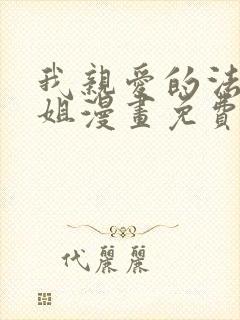 我親愛的法
姐漫畫免費
代麗麗